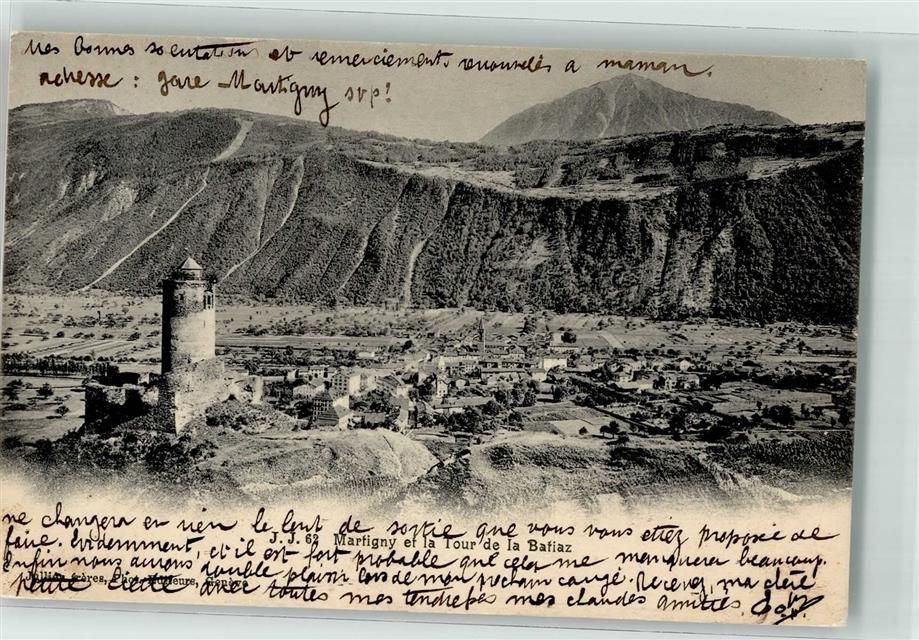 Mes bonnes salutations et remerciements renouvelés a maman.
adresse : gare Martigny svp!
ne changera en rien le but de sortie que vous vous etiez proposée de
faire. Evidemment, et il est fort probable que cela me manquera beaucoup.
J. J. 62 Martigny et la Tour de la Batiaz
Enfin nous aurons double plaisir lors de mon prochain congé. Recevez, ma chère
Jullien frères, Phot. Editeurs, Genève
petite avec toutes mes tendres mes chaudes amitiés.